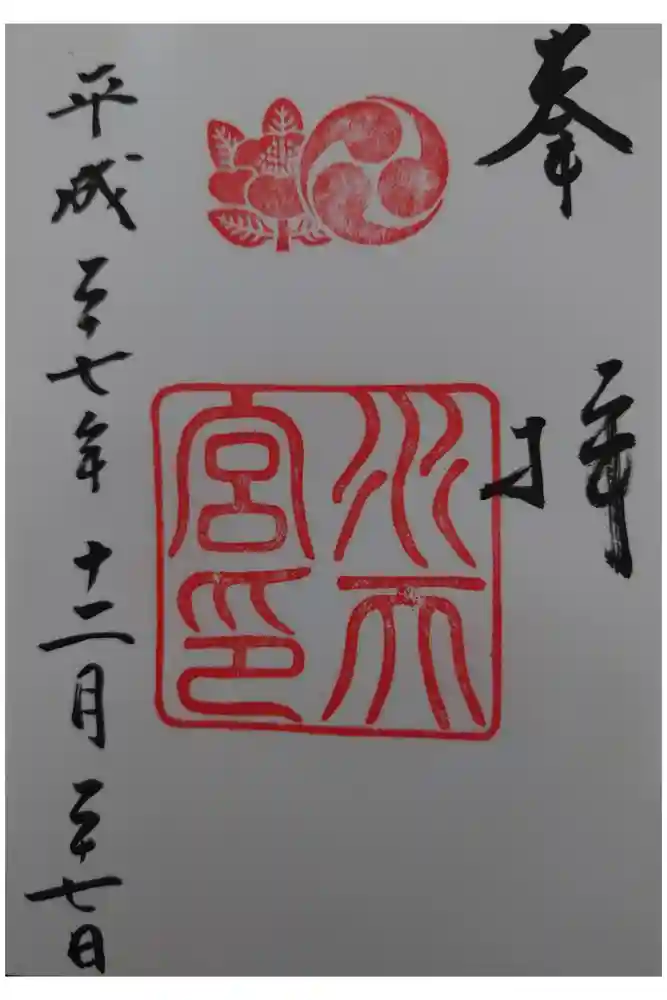 奉拝
水天
宮印
平成二十七年十二月二十七日